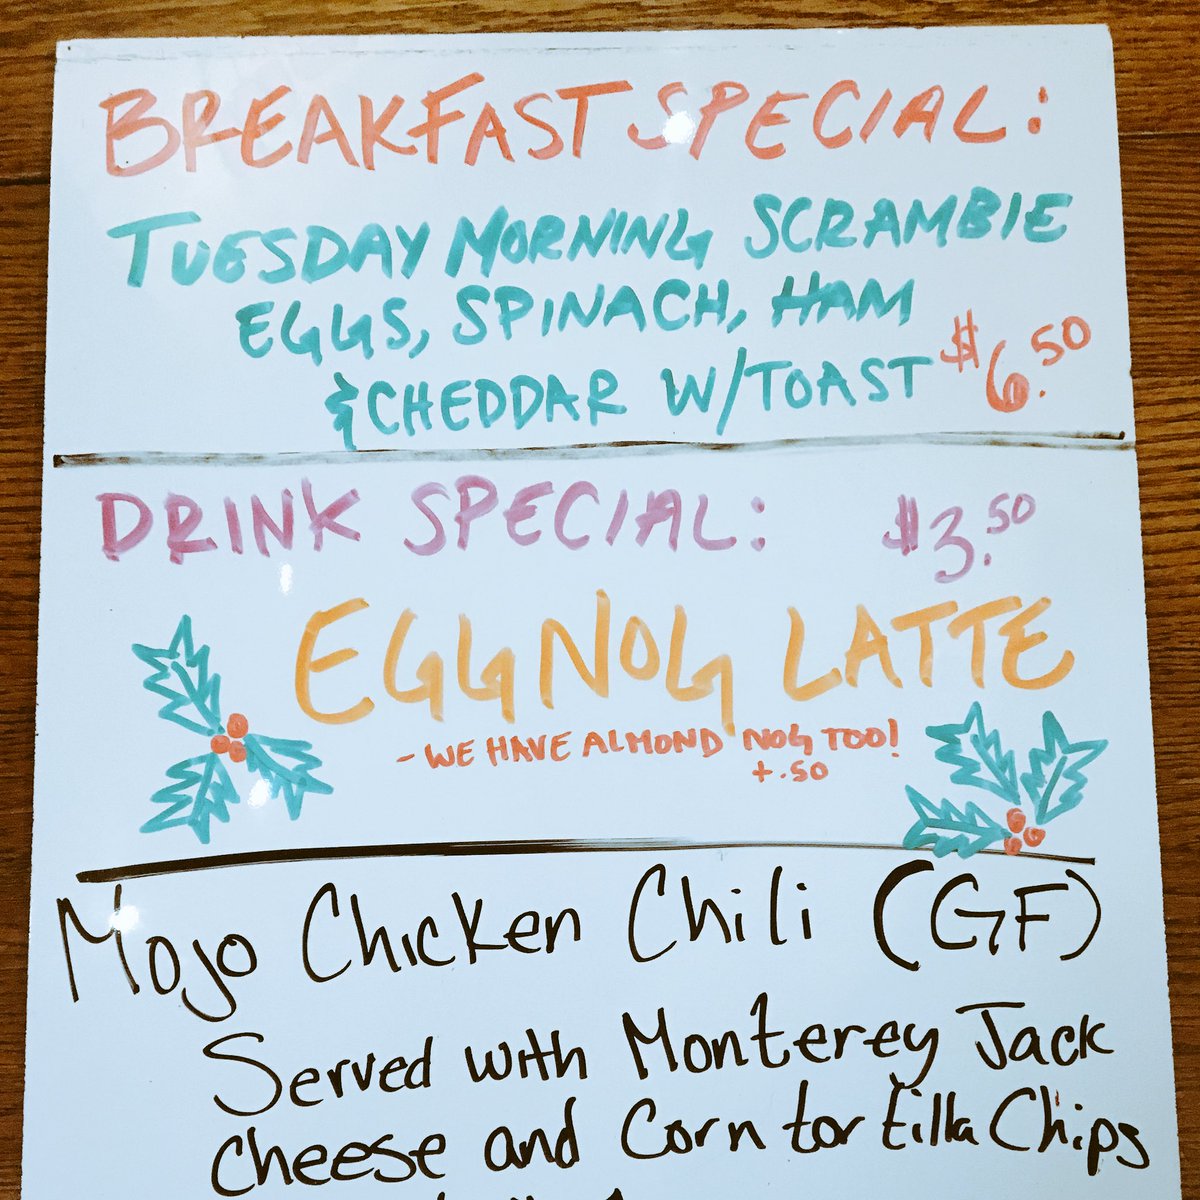 BREAKFAST SPECIAL:
TUESDAY MORNING SCRAMBLE
EGGS, SPINACH, HAM
& CHEDDAR W/TOAST $6.50
DRINK SPECIAL: $3.50
EGGNOG LATTE
- WE HAVE ALMOND NOG TOO!
+.50
Mojo Chicken Chili (GF)
Served with Monterey Jack
cheese and Corn tortilla Chips